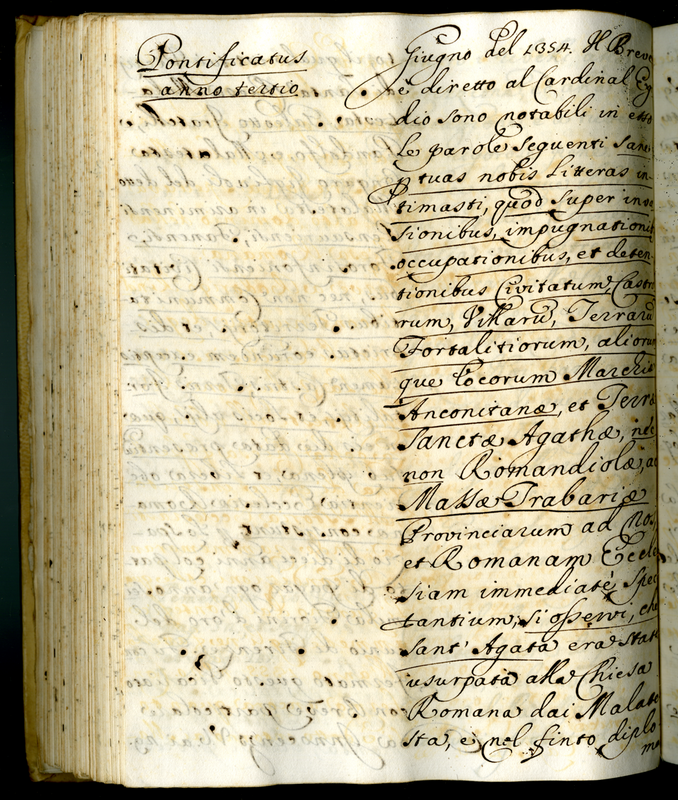 Pontificatus
anno tertio
Giugno del 1354. Il Breve
è diretto al Cardinal Egi
dio sono notabili in esso
le parole seguenti sanè
tuas nobis litteras in-
timasti, quòd super inva
sionibus, impugnationib
occupationibus, et deten-
tionibus Civitatum, Castro
rum, Villarũ, Terrarũ
Fortalitiorum, aliorum
que locorum Marchie
Anconitanæ, et Terræ
Sanctæ Agathæ, nec
non Romandiolæ, ac
Massæ Trabariæ
Provinciarum ad Nos,
et Romanam Eccle
siam immediatè spec
tantium; si osservi, che
Sant' Agata era stata
usurpata alla Chiesa
Romana dai Malate
sta, e nel finto diplo
ma